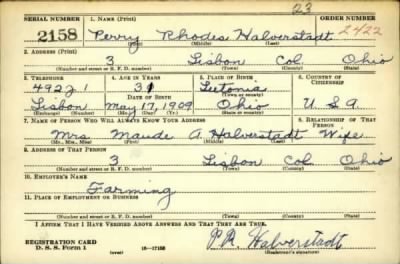 23
SERIAL NUMBER 1. NAME (Print) ORDER NUMBER
2158 Perry Rhodes Halverstadt 2422
(First) (Middle) (Last)
2. ADDRESS (Print)
3 Lisbon Col. Ohio
(Number and street or R. F. D. number) (Town) (County) (State)
3. TELEPHONE 4. AGE IN YEARS 5. PLACE OF BIRTH 6. COUNTRY OF CITIZENSHIP
492J1 31 Leetonia
DATE OF BIRTH (Town or county)
Lisbon May 17, 1909 Ohio U S A
(Exchange) (Number) (Mo.) (Day) (Yr.) (State or country)
7. NAME OF PERSON WHO WILL ALWAYS KNOW YOUR ADDRESS 8. RELATIONSHIP OF THAT PERSON
Mrs Maude A Halverstadt Wife
(Mr., Mrs., Miss) (First) (Middle) (Last)
9. ADDRESS OF THAT PERSON
3 Lisbon Col. Ohio
(Number and street or R. F. D. number) (Town) (County) (State)
10. EMPLOYER'S NAME
Farming
11. PLACE OF EMPLOYMENT OR BUSINESS
(Number and street or R. F. D. number) (Town) (County) (State)
I AFFIRM THAT I HAVE VERIFIED ABOVE ANSWERS AND THAT THEY ARE TRUE.
REGISTRATION CARD
D. S. S. Form 1 (over) 16—17105 P.R. Halverstadt
(Registrant's signature)